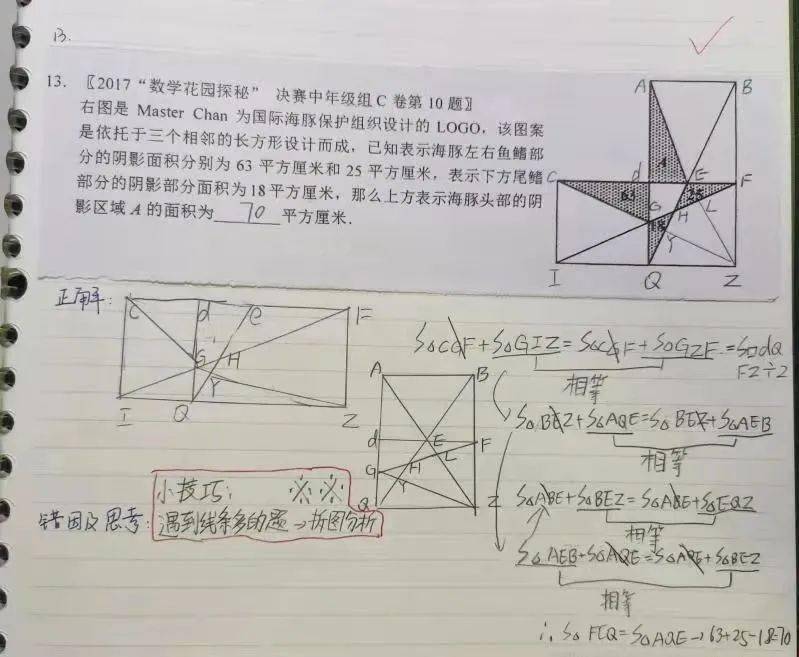 B.
13. 〖2017“数学花园探秘” 决赛中年级组 C 卷第 10 题〗
右图是 Master Chan 为国际海豚保护组织设计的 LOGO，该图案
是依托于三个相邻的长方形设计而成，已知表示海豚左右鱼鳍部
分的阴影面积分别为 63 平方厘米和 25 平方厘米，表示下方尾鳍
部分的阴影部分面积为 18 平方厘米，那么上方表示海豚头部的阴
影区域 A 的面积为 70 平方厘米．
A B
A
C d E F
63 25
G H L
18
Y
I Q Z
正解：
C d e F
G H
Y
I Q Z
A B
d E F
G H L
Y
Q Z
S△CGF+S△GIZ=S△CGF+S△GZF=S□dQ
FZ÷2
相等
S△BEZ+S△AQE=S△BEZ+S△AEB
相等
S△ABE+S△BEZ=S△ABE+S△EQZ
相等
S△AEB+S△AQE=S△AQE+S△BEZ
相等
∴S△FEQ=S△AQE→63+25-18=70
小技巧： ※ ※
错因及思考：遇到线条多的题→拆图分析